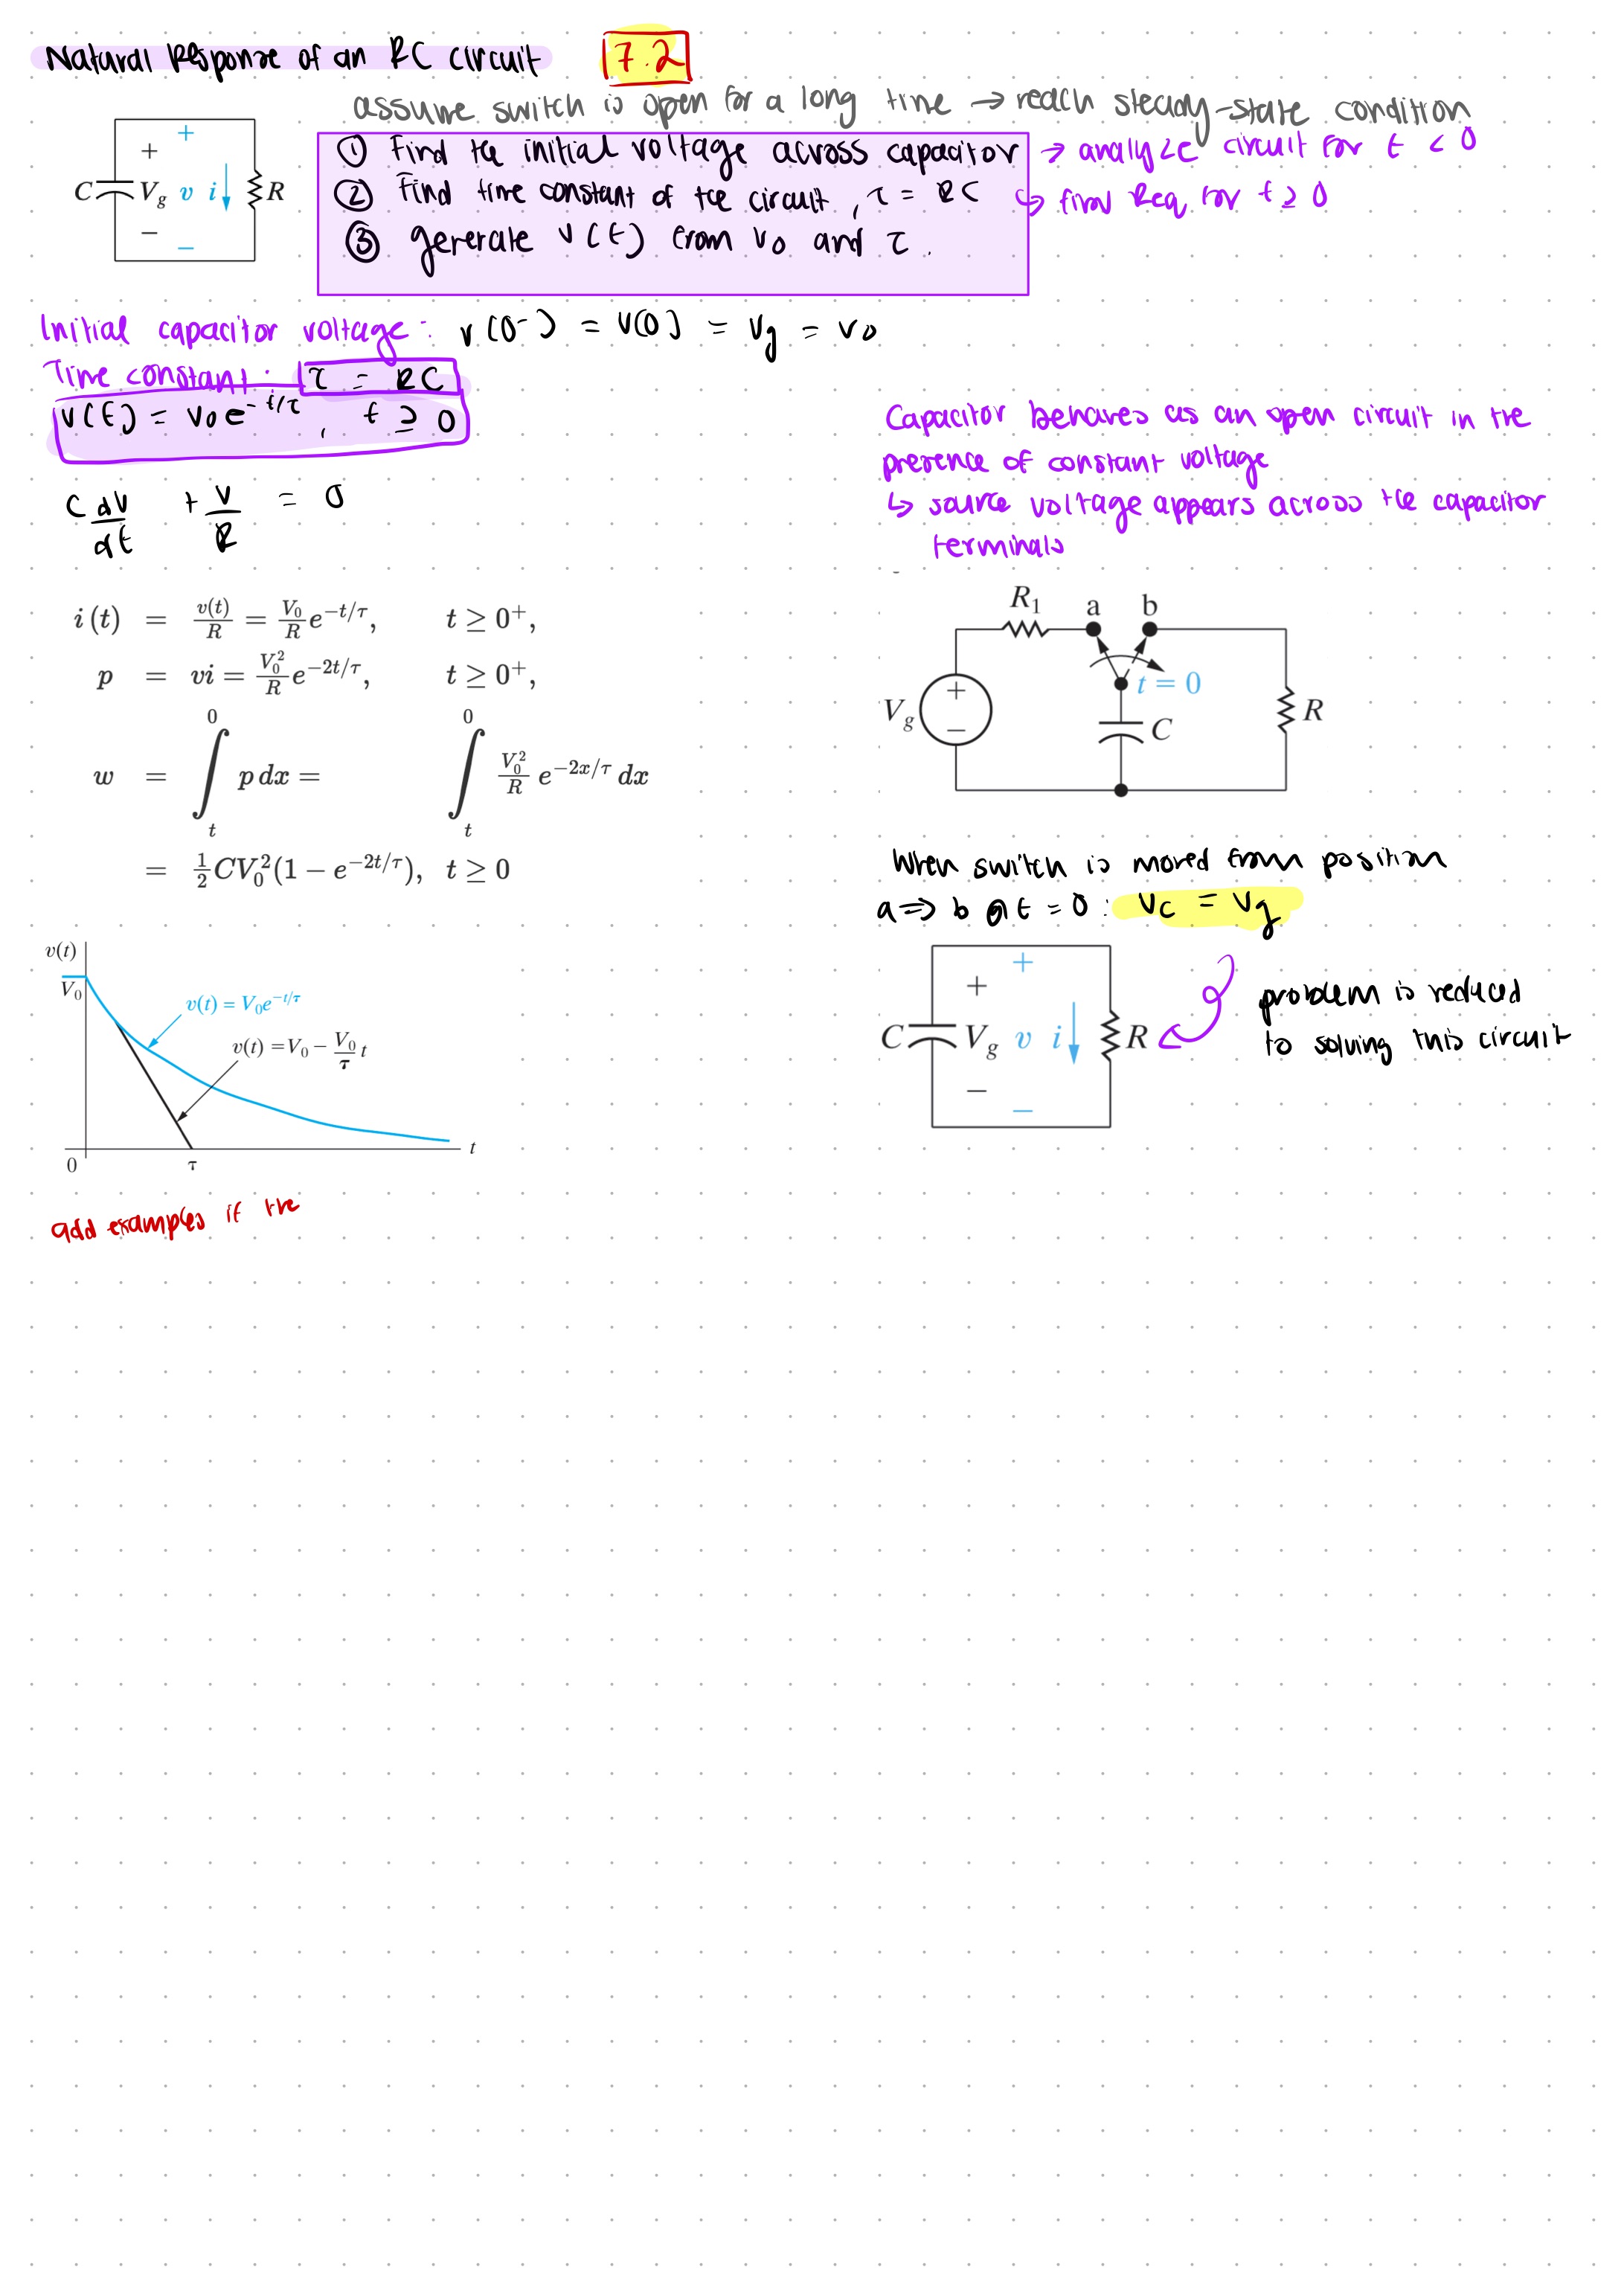 Natural Response of an RC circuit 7.2
assume switch is open for a long time → reach steady-state condition
① Find the initial voltage across capacitor → analyze circuit for t < 0
② Find time constant of the circuit, τ = RC ↳ find Req for t ≥ 0
③ generate v(t) from v₀ and τ.
+
+
C V_g v i R
−
−
Initial capacitor voltage: v(0⁻) = v(0) = v_g = v₀
Time constant: τ = RC
v(t) = v₀e^{-t/τ}, t ≥ 0
C dv/dt + v/R = 0
i(t) = v(t)/R = V₀/R e^{−t/τ}, t ≥ 0⁺,
p = vi = V₀²/R e^{−2t/τ}, t ≥ 0⁺,
w = ∫_t^0 p dx = ∫_t^0 V₀²/R e^{−2x/τ} dx
= ½CV₀²(1 − e^{−2t/τ}), t ≥ 0
v(t)
V₀
v(t) = V₀e^{−t/τ}
v(t) = V₀ − V₀/τ t
0 τ t
add examples if the
Capacitor behaves as an open circuit in the
presence of constant voltage
↳ source voltage appears across the capacitor
terminals
R₁ a b
t = 0
V_g + − C R
When switch is moved from position
a ⇒ b @ t = 0: v_c = v_g
+
+
C V_g v i R
−
−
problem is reduced
to solving this circuit